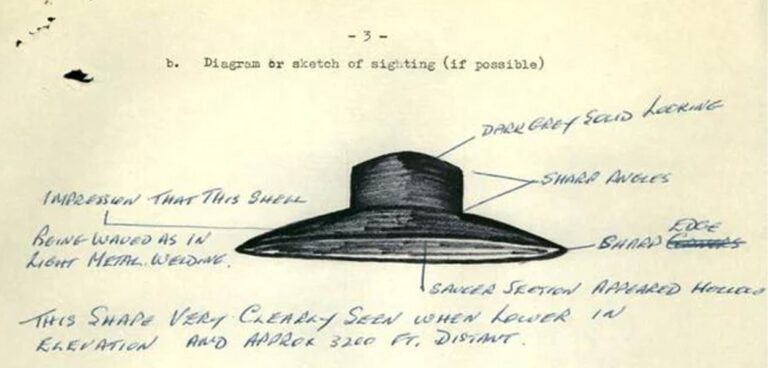 - 3 -
b. Diagram or sketch of sighting (if possible)
DARK GREY SOLID LOOKING
SHARP ANGLES
IMPRESSION THAT THIS SHELL
BEING WAVED AS IN
LIGHT METAL WELDING.
SHARP EDGE
SAUCER SECTION APPEARED HOLLOW
THIS SHAPE VERY CLEARLY SEEN WHEN LOWER IN
ELEVATION AND APPROX 3200 FT. DISTANT.